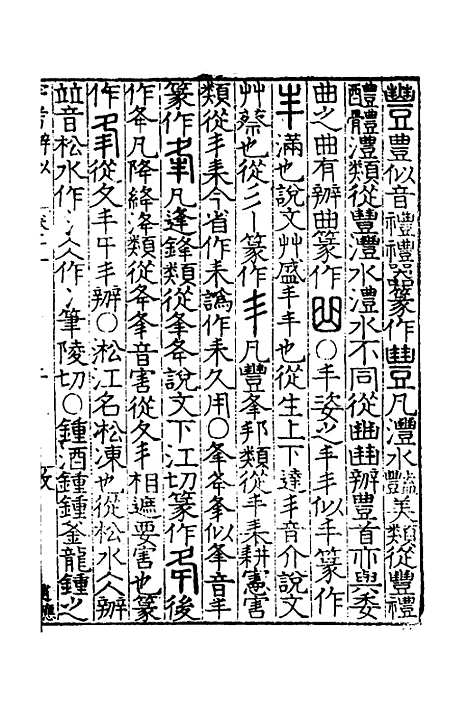 豐豊似音禮禮器篆作豐凡灃水豔美類從豐禮
醴體澧類從豊灃水澧水不同從辦豐首亦與委
曲之曲有辦曲篆作〇丰姿之丰丰似手篆作
丰滿也說文艸盛丰丰也從生上下達丯音介說文
艸蔡也從彡丨篆作丯凡豐夆邦類從丰耒耕憲害
類從丯耒今省作耒譌作耒久用〇夆夅夆似夆音丰
篆作夆凡逢鋒類從夆夅說文下江切篆作夅後
作夅凡降絳洚類從夅夆音害從夂丯相遮要害也篆
作從夂丰㐄丯辦〇淞江名凇凍也從松水仌辦
竝音松水作氵仌作冫筆陵切〇鍾酒鍾鍾釜龍鍾之